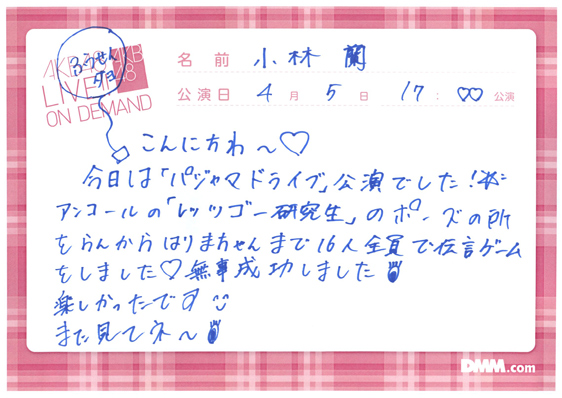 AKB48
LIVE!!
ON DEMAND
ふうせん
名前 小林 蘭
公演日 4月5日 17:♡♡公演
こんにちわ~♡
今日は「パジャマドライブ」公演でした!
アンコールの「レッツゴー研究生」のポーズの所
をらんからはりまちゃんまで16人全員で伝言ゲーム
をしました♡無事成功しました
楽しかったです
また見てネ~
DMM.com